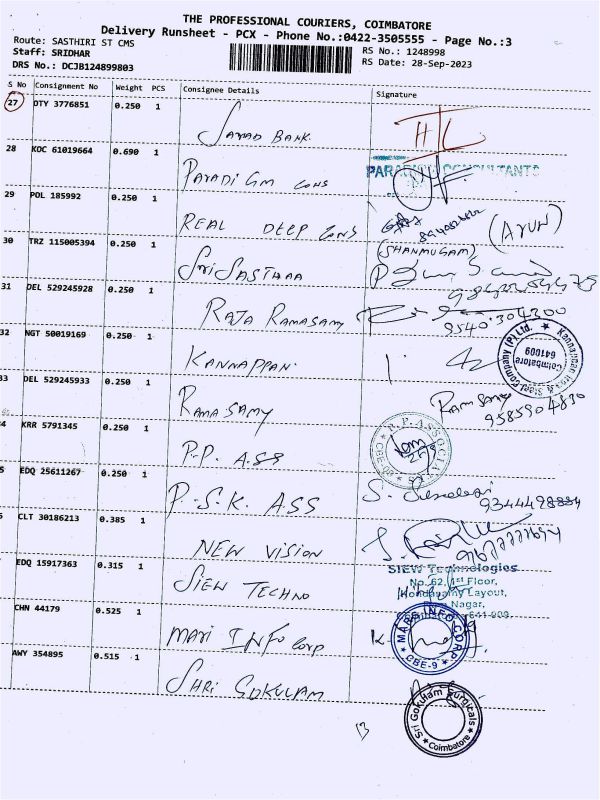 THE PROFESSIONAL COURIERS, COIMBATORE
Delivery Runsheet - PCX - Phone No.:0422-3505555 - Page No.:3
Route: SASTHIRI ST CMS
RS No.: 1248998
Staff: SRIDHAR
RS Date: 28-Sep-2023
DRS No.: DCJB124899803
S No Consignment No Weight PCS Consignee Details Signature
27 DTY 3776851 0.250 1
BANK
HTL
28 KOC 61019664 0.690 1
PARADIGM CONS
PARADIGM CONSULTANTS
29 POL 185992 0.250 1
REAL DEEP CONS
(ARUN)
30 TRZ 115005394 0.250 1
(SHANMUGAM)
Sri SASTHAA
31 DEL 529245928 0.250 1
RAJA RAMASAMY
9540304300
32 NGT 50019169 0.250 1
KANNAPPAN
Steel Company (P) Ltd.
Coimbatore
641009
33 DEL 529245933 0.250 1
RAMASAMY
Ramsamy
9585904830
34 KRR 5791345 0.250 1
P.P. ASS
P.P. ASSOCIATES
35 EDQ 25611267 0.250 1
P.S.K. ASS
9344498884
CLT 30186213 0.385 1
NEW VISION
EDQ 15917363 0.315 1
SIEW TECHNO
SIEW Technologies
No. 62, 1st Floor,
Kondasamy Layout,
Nagar,
641 009
CHN 44179 0.525 1
MARI INFO CORP
INFO CORP
CBE-9
AWY 354895 0.515 1
SHRI GOKULAM
Sri Gokulam Surgicals
Coimbatore
13